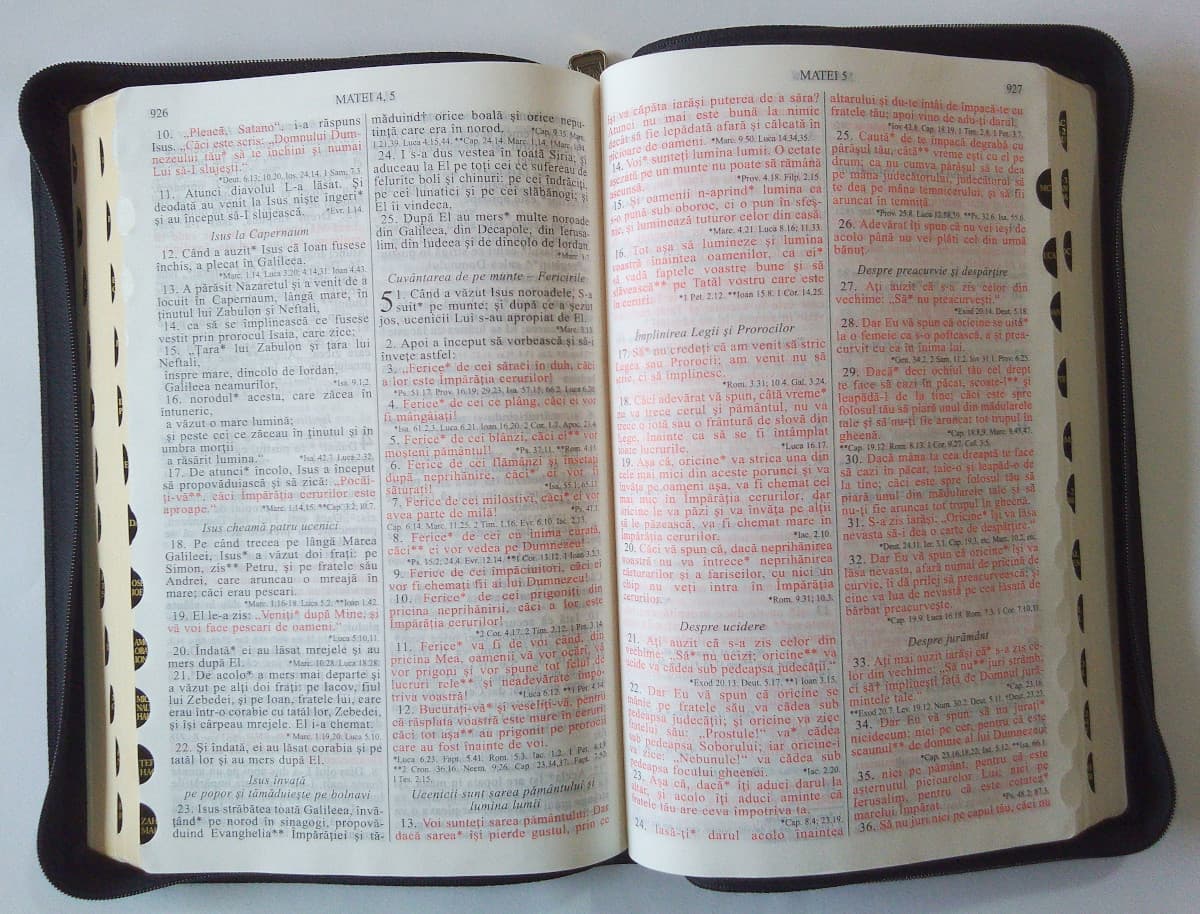 926
MATEI 4, 5
10. „Pleacă, Satano”, i-a răspuns
Isus. „Căci este scris: „Domnului Dum-
nezeului tău* să te închini și numai
Lui să-I slujești.””
*Deut. 6.13; 10.20, Ios. 24.14, 1 Sam. 7.3.
11. Atunci diavolul L-a lăsat. Și
deodată au venit la Isus niște îngeri*
și au început să-I slujească. *Evr. 1.14.
Isus la Capernaum
12. Când a auzit* Isus că Ioan fusese
închis, a plecat în Galileea.
*Marc. 1.14, Luca 3.20; 4.14,31, Ioan 4.43.
13. A părăsit Nazaretul și a venit de a
locuit în Capernaum, lângă mare, în
ținutul lui Zabulon și Neftali,
14. ca să se împlinească ce fusese
vestit prin prorocul Isaia, care zice:
15. „Țara* lui Zabulon și țara lui
Neftali,
înspre mare, dincolo de Iordan,
Galileea neamurilor, *Isa. 9.1,2.
16. norodul* acesta, care zăcea în
întuneric,
a văzut o mare lumină;
și peste cei ce zăceau în ținutul și în
umbra morții
a răsărit lumina.” *Isa. 42.7, Luca 2.32.
17. De atunci* încolo, Isus a început
să propovăduiască și să zică: „Pocăi-
ți-vă**, căci Împărăția cerurilor este
aproape.” *Marc. 1.14,15. **Cap. 3.2; 10.7.
Isus cheamă patru ucenici
18. Pe când trecea pe lângă Marea
Galileei, Isus* a văzut doi frați: pe
Simon, zis** Petru, și pe fratele său
Andrei, care aruncau o mreajă în
mare; căci erau pescari.
*Marc. 1.16-18, Luca 5.2. **Ioan 1.42.
19. El le-a zis: „Veniți* după Mine, și
vă voi face pescari de oameni.”
*Luca 5.10,11.
20. Îndată* ei au lăsat mrejele și au
mers după El. *Marc. 10.28, Luca 18.28.
21. De acolo* a mers mai departe și
a văzut pe alți doi frați: pe Iacov, fiul
lui Zebedei, și pe Ioan, fratele lui, care
erau într-o corabie cu tatăl lor, Zebedei,
și își cârpeau mrejele. El i-a chemat.
*Marc. 1.19,20, Luca 5.10.
22. Și îndată, ei au lăsat corabia și pe
tatăl lor și au mers după El.
Isus învață
pe popor și tămăduiește pe bolnavi
23. Isus străbătea toată Galileea, învă-
țând* pe norod în sinagogi, propovă-
duind Evanghelia** Împărăției și tă-
măduind† orice boală și orice nepu-
tință care era în norod. *Cap. 9.35, Marc.
1.21,39, Luca 4.15,44. **Cap. 24.14, Marc. 1.14. †Marc. 1.34.
24. I s-a dus vestea în toată Siria; și
aduceau la El pe toți cei ce sufereau de
felurite boli și chinuri: pe cei îndrăciți,
pe cei lunatici și pe cei slăbănogi; și
El îi vindeca.
25. După El au mers* multe noroade
din Galileea, din Decapole, din Ierusa-
lim, din Iudeea și de dincolo de Iordan.
Cuvântarea de pe munte – Fericirile
5 1. Când a văzut Isus noroadele, S-a
suit* pe munte; și după ce a șezut
jos, ucenicii Lui s-au apropiat de El.
2. Apoi a început să vorbească și să-i
învețe astfel:
3. „Ferice* de cei săraci în duh, căci
a lor este Împărăția cerurilor!
*Ps. 51.17, Prov. 16.19; 29.23, Isa. 57.15; 66.2, Luca 6.20.
4. Ferice* de cei ce plâng, căci ei vor
fi mângâiați!
*Isa. 61.2,3, Luca 6.21, Ioan 16.20, 2 Cor. 1.7, Apoc. 21.4.
5. Ferice* de cei blânzi, căci ei** vor
moșteni pământul! *Ps. 37.11. **Rom. 4.13.
6. Ferice de cei flămânzi și însetați
după neprihănire, căci* ei vor fi
săturați! *Isa. 55.1; 65.13.
7. Ferice de cei milostivi, căci* ei vor
avea parte de milă! *Ps. 41.1,
Cap. 6.14, Marc. 11.25, 2 Tim. 1.16, Evr. 6.10, Iac. 2.13.
8. Ferice* de cei cu inima curată,
căci** ei vor vedea pe Dumnezeu!
*Ps. 15.2; 24.4, Evr. 12.14. **1 Cor. 13.12, 1 Ioan 3.2,3.
9. Ferice de cei împăciuitori, căci ei
vor fi chemați fii ai lui Dumnezeu!
10. Ferice* de cei prigoniți din
pricina neprihănirii, căci a lor este
Împărăția cerurilor!
*2 Cor. 4.17, 2 Tim. 2.12, 1 Pet. 3.14.
11. Ferice* va fi de voi când, din
pricina Mea, oamenii vă vor ocărî, vă
vor prigoni și vor spune tot felul de
lucruri rele** și neadevărate împo-
triva voastră! *Luca 6.12. **1 Pet. 4.14.
12. Bucurați-vă* și veseliți-vă, pentru
că răsplata voastră este mare în ceruri;
căci tot așa** au prigonit pe prorocii
care au fost înainte de voi.
*Luca 6.23, Fapt. 5.41, Rom. 5.3, Iac. 1.2, 1 Pet. 4.13.
**2 Cron. 36.16, Neem. 9.26, Cap. 23.34,37, Fapt. 7.52,
1 Tes. 2.15.
Ucenicii sunt sarea pământului și
lumina lumii
13. Voi sunteți sarea pământului. Dar
dacă sarea* își pierde gustul, prin ce
MATEI 5
927
își va căpăta iarăși puterea de a săra?
Atunci nu mai este bună la nimic
decât să fie lepădată afară și călcată în
picioare de oameni. *Marc. 9.50, Luca 14.34,35.
14. Voi* sunteți lumina lumii. O cetate
așezată pe un munte nu poate să rămână
ascunsă. *Prov. 4.18, Filip. 2.15.
15. Și oamenii n-aprind* lumina ca
s-o pună sub oboroc, ci o pun în sfeș-
nic, și luminează tuturor celor din casă.
*Marc. 4.21, Luca 8.16; 11.33.
16. Tot așa să lumineze și lumina
voastră înaintea oamenilor, ca ei*
să vadă faptele voastre bune și să
slăvească** pe Tatăl vostru care este
în ceruri. *1 Pet. 2.12. **Ioan 15.8, 1 Cor. 14.25.
Împlinirea Legii și Prorocilor
17. Să* nu credeți că am venit să stric
Legea sau Prorocii; am venit nu să
stric, ci să împlinesc.
*Rom. 3.31; 10.4, Gal. 3.24.
18. Căci adevărat vă spun, câtă vreme*
nu va trece cerul și pământul, nu va
trece o iotă sau o frântură de slovă din
Lege, înainte ca să se fi întâmplat
toate lucrurile. *Luca 16.17.
19. Așa că, oricine* va strica una din
cele mai mici din aceste porunci și va
învăța pe oameni așa, va fi chemat cel
mai mic în Împărăția cerurilor; dar
oricine le va păzi și va învăța pe alții
să le păzească, va fi chemat mare în
Împărăția cerurilor. *Iac. 2.10.
20. Căci vă spun că, dacă neprihănirea
voastră nu va întrece* neprihănirea
cărturarilor și a fariseilor, cu nici un
chip nu veți intra în Împărăția
cerurilor. *Rom. 9.31; 10.3.
Despre ucidere
21. Ați auzit că s-a zis celor din
vechime: „Să* nu ucizi; oricine** va
ucide va cădea sub pedeapsa judecății.”
*Exod 20.13, Deut. 5.17. **1 Ioan 3.15.
22. Dar Eu vă spun că oricine se
mânie pe fratele său va cădea sub
pedeapsa judecății; și oricine va zice
fratelui său: „Prostule!” va* cădea
sub pedeapsa Soborului; iar oricine-i
va zice: „Nebunule!” va cădea sub
pedeapsa focului gheenei. *Iac. 2.20.
23. Așa că, dacă* îți aduci darul la
altar, și acolo îți aduci aminte că
fratele tău are ceva împotriva ta,
*Cap. 8.4; 23.19.
24. lasă-ți* darul acolo înaintea
altarului și du-te întâi de împacă-te cu
fratele tău; apoi vino de adu-ți darul.
*Iov 42.8, Cap. 18.19, 1 Tim. 2.8, 1 Pet. 3.7.
25. Caută* de te împacă degrabă cu
pârâșul tău, câtă** vreme ești cu el pe
drum; ca nu cumva pârâșul să te dea
pe mâna judecătorului, judecătorul să
te dea pe mâna temnicerului, și să fii
aruncat în temniță.
*Prov. 25.8, Luca 12.58,59. **Ps. 32.6, Isa. 55.6.
26. Adevărat îți spun că nu vei ieși de
acolo până nu vei plăti cel din urmă
bănuț.
Despre preacurvie și despărțire
27. Ați auzit că s-a zis celor din
vechime: „Să* nu preacurvești.”
*Exod 20.14, Deut. 5.18.
28. Dar Eu vă spun că oricine se uită*
la o femeie ca s-o poftească, a și prea-
curvit cu ea în inima lui.
*Gen. 34.2, 2 Sam. 11.2, Iov 31.1, Prov. 6.25.
29. Dacă* deci ochiul tău cel drept
te face să cazi în păcat, scoate-l** și
leapădă-l de la tine; căci este spre
folosul tău să piară unul din mădularele
tale și să nu-ți fie aruncat tot trupul în
gheenă. *Cap. 18.8,9, Marc. 9.43,47.
**Cap. 19.12, Rom. 8.13, 1 Cor. 9.27, Col. 3.5.
30. Dacă mâna ta cea dreaptă te face
să cazi în păcat, taie-o și leapăd-o de
la tine; căci este spre folosul tău să
piară unul din mădularele tale și să
nu-ți fie aruncat tot trupul în gheenă.
31. S-a zis iarăși: „Oricine* își va lăsa
nevasta să-i dea o carte de despărțire.”
*Deut. 24.1, Ier. 3.1, Cap. 19.3, etc. Marc. 10.2, etc.
32. Dar Eu vă spun că oricine* își va
lăsa nevasta, afară numai de pricină de
curvie, îi dă prilej să preacurvească; și
cine va lua de nevastă pe cea lăsată de
bărbat preacurvește.
*Cap. 19.9, Luca 16.18, Rom. 7.3, 1 Cor. 7.10,11.
Despre jurământ
33. Ați mai auzit iarăși că* s-a zis ce-
lor din vechime: „Să nu** juri strâmb;
ci să† împlinești față de Domnul jură-
mintele tale.” *Cap. 23.16.
**Exod 20.7, Lev. 19.12, Num. 30.2, Deut. 5.11. †Deut. 23.23.
34. Dar Eu vă spun: să nu jurați*
nicidecum; nici pe cer, pentru că este
scaunul** de domnie al lui Dumnezeu;
*Cap. 23.16,18,22, Iac. 5.12. **Isa. 66.1.
35. nici pe pământ, pentru că este
așternutul picioarelor Lui; nici pe
Ierusalim, pentru că este cetatea*
marelui Împărat. *Ps. 48.2; 87.3.
36. Să nu juri nici pe capul tău, căci nu